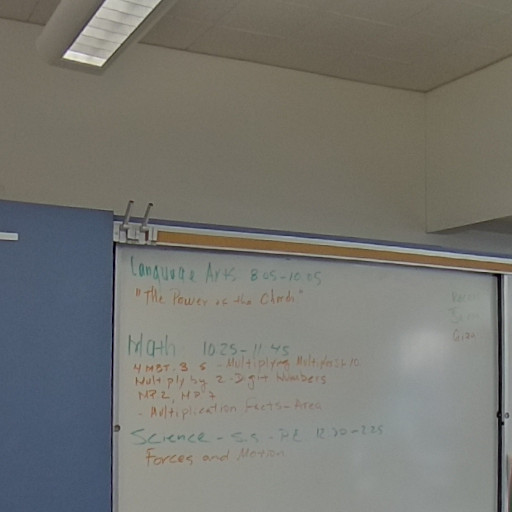 Language Arts 8:05-10:05
"The Power of the Chords"
Math 10:25-11:45
4 NBT. 3 5 - Multiplying Multiples of 10
Multiply by 2-Digit Numbers
MP.2, MP.7
- Multiplication Facts - Area
Science - S.S. - P.E. 12:20-
Forces and Motion